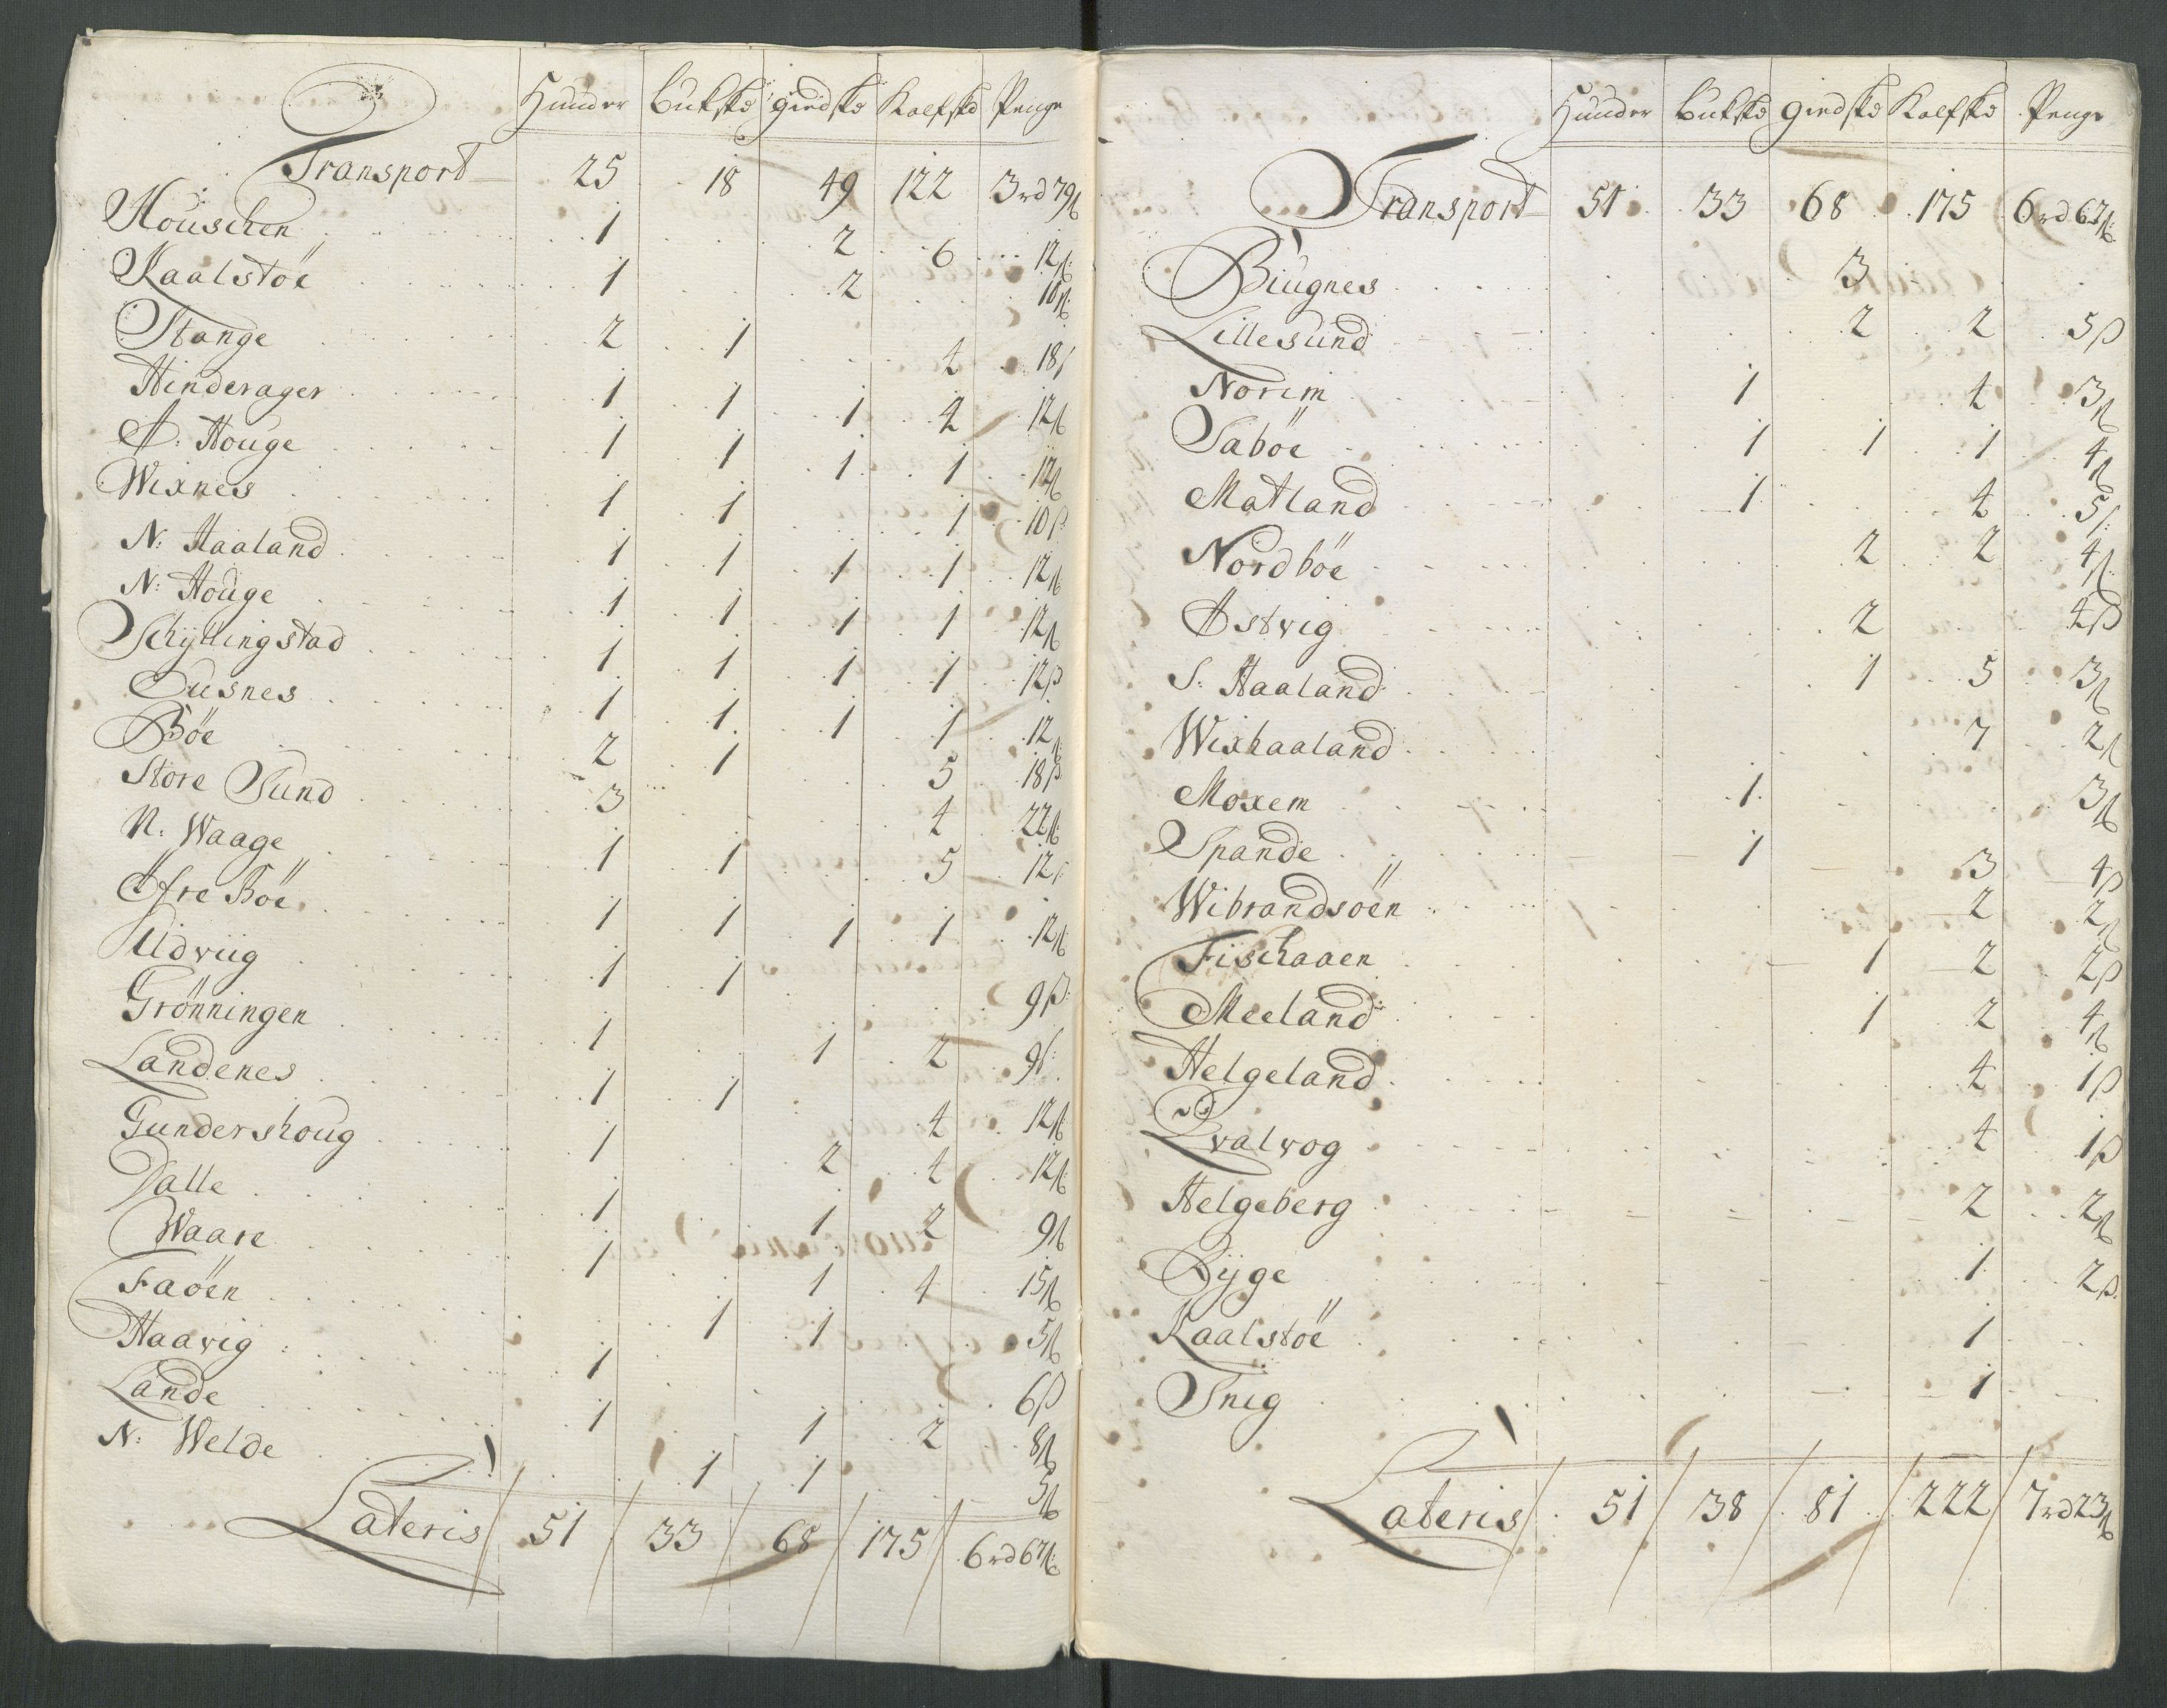 Hunder Buksk giedsk Kalfsk Penge
Transport 25 18 49 122 3rd 79ß
Houschen 1 2 6 12ß
Kaalstöe 1 2 10ß
Stange 2 1 4 18ß
Hinderager 1 1 1 4 12ß
S: Houge 1 1 1 1 12ß
Wixnes 1 1 1 10ß
N: Haaland 1 1 1 1 12ß
N: Houge 1 1 1 1 12ß
Schyllingstad 1 1 1 1 12ß
Susnes 1 1 1 1 12ß
Böe 2 1 5 18ß
Store Sund 3 4 22ß
N. Waage 1 1 5 12ß
Öfre Böe 1 1 1 1 12ß
Udviig 1 1 9ß
Grönningen 1 1 2 9ß
Landenes 1 1 4 12ß
Gundershoug 1 2 4 12ß
Dalle 1 1 2 9ß
Waare 1 1 4 15ß
Faöen 1 1 5ß
Haavig 1 6ß
Lande 1 1 2 8ß
N: Welde 1 1 5ß
Lateris 51 33 68 175 6rd 67ß
Hunder Buksk giedsk Kalfsk Penge
Transport 51 33 68 175 6rd 67ß
Biugnes 3
Lillesund 2 2 5ß
Noreim 1 4 3ß
Saböe 1 1 1 4ß
Matland 1 4 5ß
Nordböe 2 2 4ß
Østvig 2 4ß
S: Haaland 1 5 3ß
Wixhaaland 7 2ß
Moxem 1 3ß
Spande 1 3 4ß
Wibrandsöen 2 2ß
Fischaaen 1 2 2ß
Meeland 1 2 4ß
Helgeland 4 1ß
Qvalvog 4 1ß
Helgeberg 2 2ß
Ryge 1 2ß
Kaalstöe 1
Snig 1
Lateris 51 38 81 222 7rd 23ß